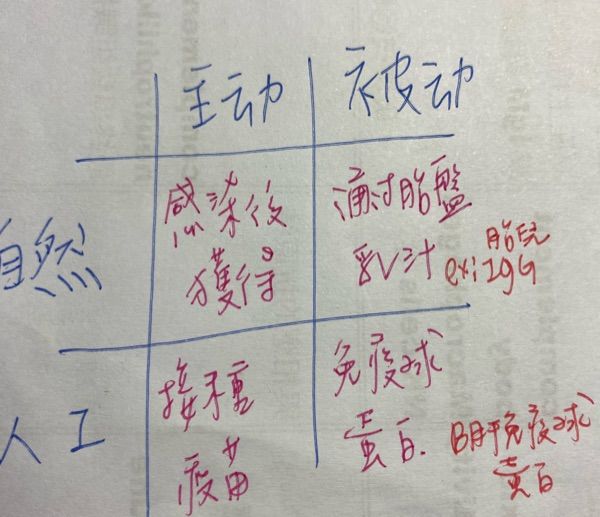 主动 被动
自然
感染後
獲得
通过胎盤
乳汁
胎兒
ex:IgG
人工
接種
疫苗
免疫球
蛋白.
B肝免疫球
蛋白